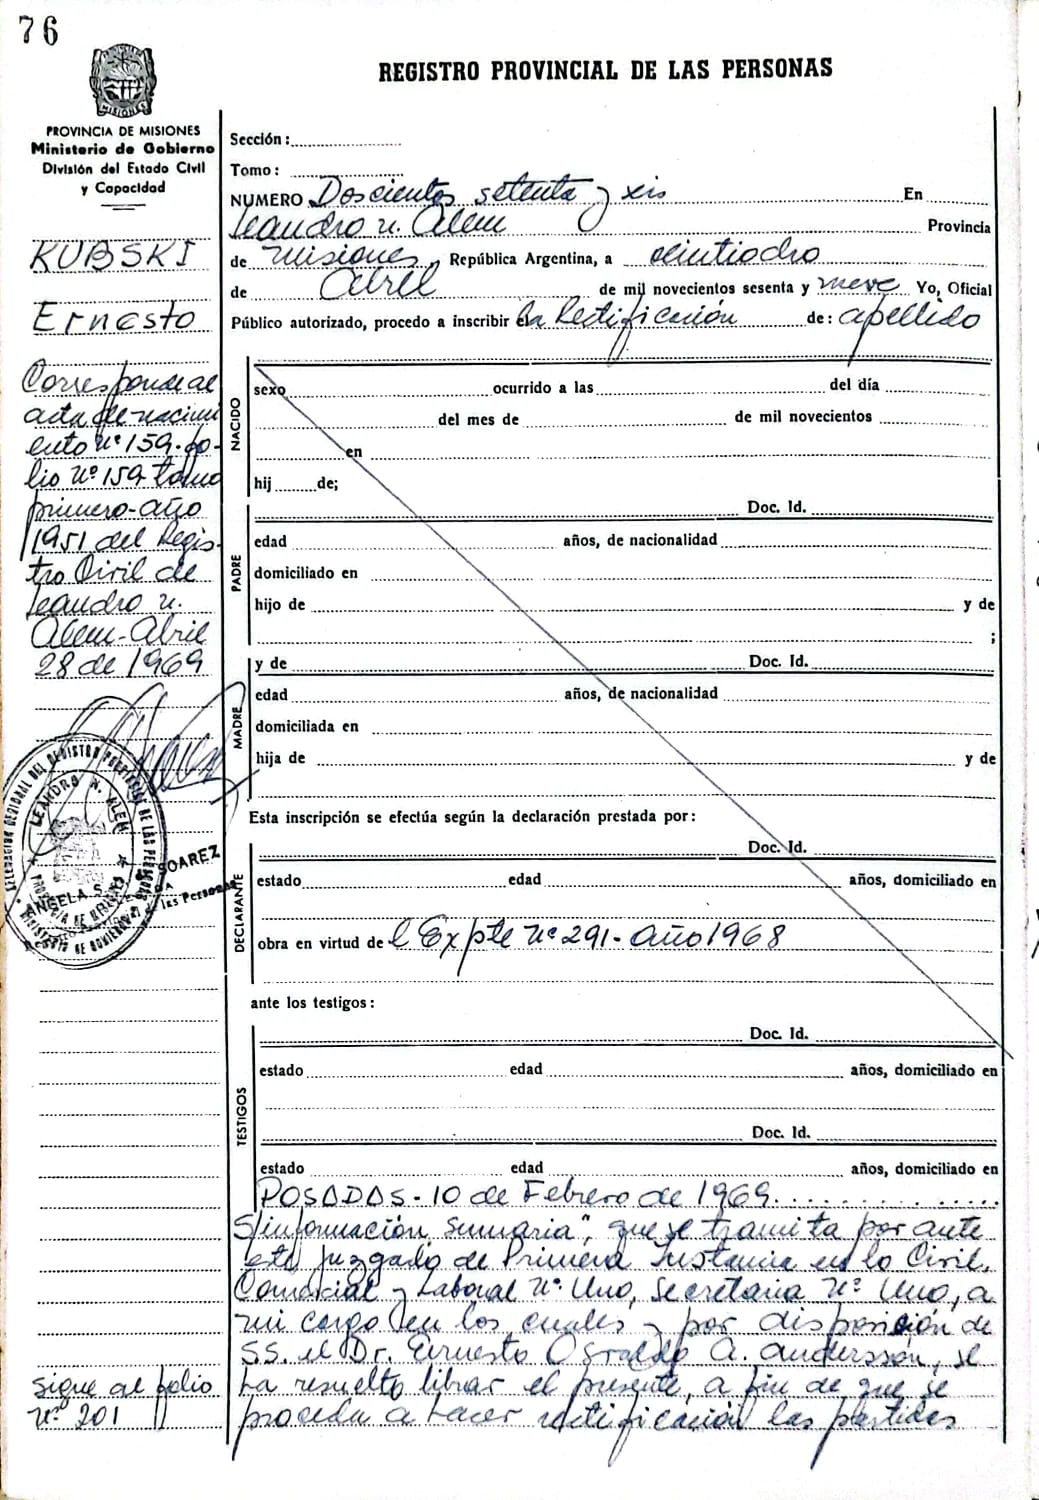 76
REGISTRO PROVINCIAL DE LAS PERSONAS
PROVINCIA DE MISIONES
Ministerio de Gobierno
División del Estado Civil
y Capacidad
KUBSKI
Ernesto
Corresponde al
acta de nacimi
ento Nº 159. fo-
lio Nº 159 tomo
primero - año
1951 del Regis-
tro Civil de
Leandro N.
Alem - Abril
28 de 1969
DELEGACION REGIONAL DEL REGISTRO PROVINCIAL DE LAS PERSONAS
LEANDRO N. ALEM
PROVINCIA DE MISIONES
MINISTERIO DE GOBIERNO
ANGELA S. SOAREZ
las Personas
sigue al folio
Nº 201
Sección:
Tomo:
NUMERO Doscientos setenta y seis En
Leandro N. Alem Provincia
de Misiones, República Argentina, a veintiocho
de Abril de mil novecientos sesenta y nueve Yo, Oficial
Público autorizado, procedo a inscribir la Rectificación de: apellido
NACIDO
sexo ocurrido a las del día
del mes de de mil novecientos
en
hij de;
Doc. Id.
PADRE
edad años, de nacionalidad
domiciliado en
hijo de y de
;
y de Doc. Id.
MADRE
edad años, de nacionalidad
domiciliada en
hija de y de
Esta inscripción se efectúa según la declaración prestada por:
Doc. Id.
DECLARANTE
estado edad años, domiciliado en
obra en virtud de l Expte Nº 291 - Año 1968
ante los testigos:
Doc. Id.
TESTIGOS
estado edad años, domiciliado en
Doc. Id.
estado edad años, domiciliado en
POSADAS - 10 de Febrero de 1969
S/información sumaria", que se tramita por ante
este juzgado de Primera Instancia en lo Civil,
Comercial y Laboral Nº Uno, Secretaria Nº Uno, a
mi cargo en los cuales y por disposición de
SS. el Dr. Ernesto Osvaldo A. Andersson, se
ha resuelto librar el presente, a fin de que se
proceda a hacer rectificación las partidas